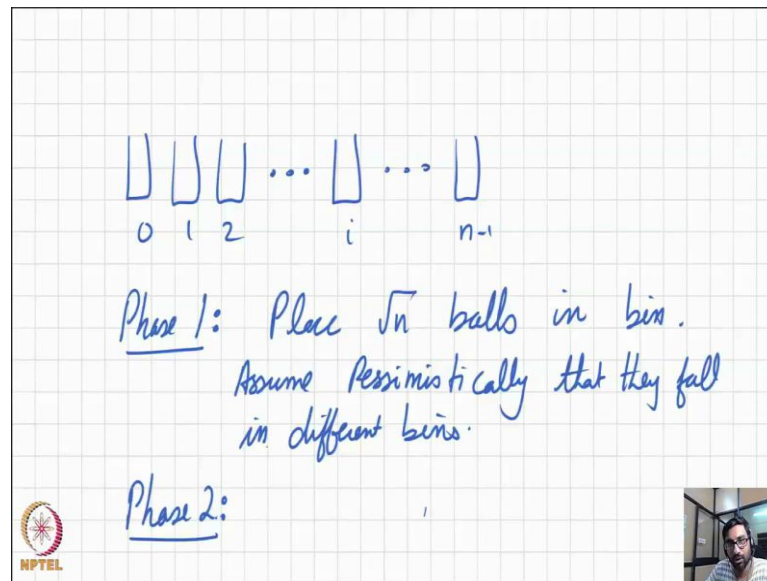 0 1 2 ... i ... n-1
Phase 1: Place √n balls in bin.
Assume Pessimistically that they fall
in different bins.
Phase 2:
NPTEL